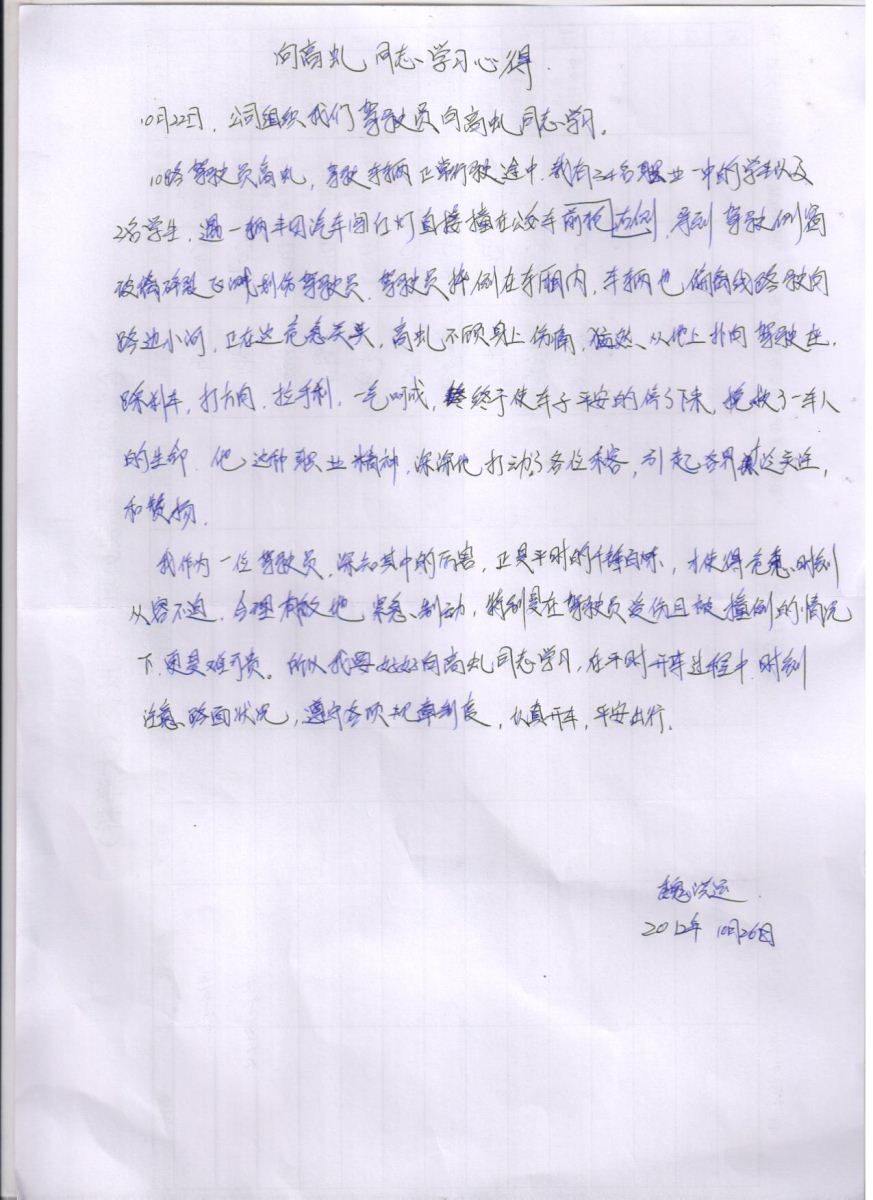 向高虬同志学习心得
10月22日，公司组织我们驾驶员向高虬同志学习。
10路驾驶员高虬，驾驶车辆正常行驶途中，载有24名职业一中的学生以及
2名学生，遇一辆丰田汽车闯红灯直接撞在公交车前 右侧，导到驾驶侧窗
玻璃碎裂飞溅划伤驾驶员，驾驶员摔倒在车厢内，车辆也偏离线路驶向
路边小河，正在这危急关头，高虬不顾身上伤痛，猛然从地上扑向驾驶座，
踩刹车，打方向，拉手刹，一气呵成，终于使车子平安的停了下来，挽救了一车人
的生命，他这种职业精神，深深地打动了各位乘客，引起各界广泛关注，
和赞扬。
我作为一位驾驶员，深知其中的厉害，正是平时的千锤百炼，才使得危急时刻
从容不迫，合理有效地紧急制动，特别是在驾驶员受伤且被撞倒的情况
下，更是难可贵。所以我要好好向高虬同志学习，在平时开车过程中，时刻
注意路面状况，遵守各项规章制度，认真开车，平安出行。
魏洪运
2012年10月26日